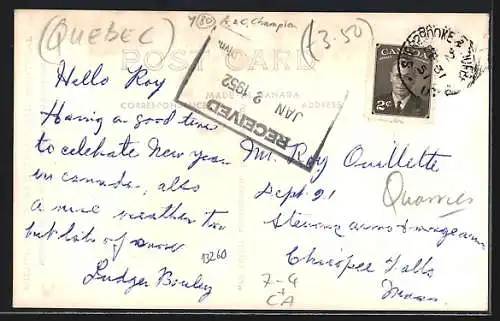 (QUEBEC)
Y(80) A & C. Champlain
(-3.50)
POST CARD
MADE IN CANADA
CORRESPONDENCE
ADDRESS
RECEIVED
JAN 2 1952
CANADA
2¢
Hello Roy
Having a good time
to celebrate New year
in canada, also
a nice weather too
but lots of snow
Ludger
B260
Mr. Roy Ouillette
Sept 21
Stevens arms
Quarries
Chicopee Falls
Mass
7-4
+
CA